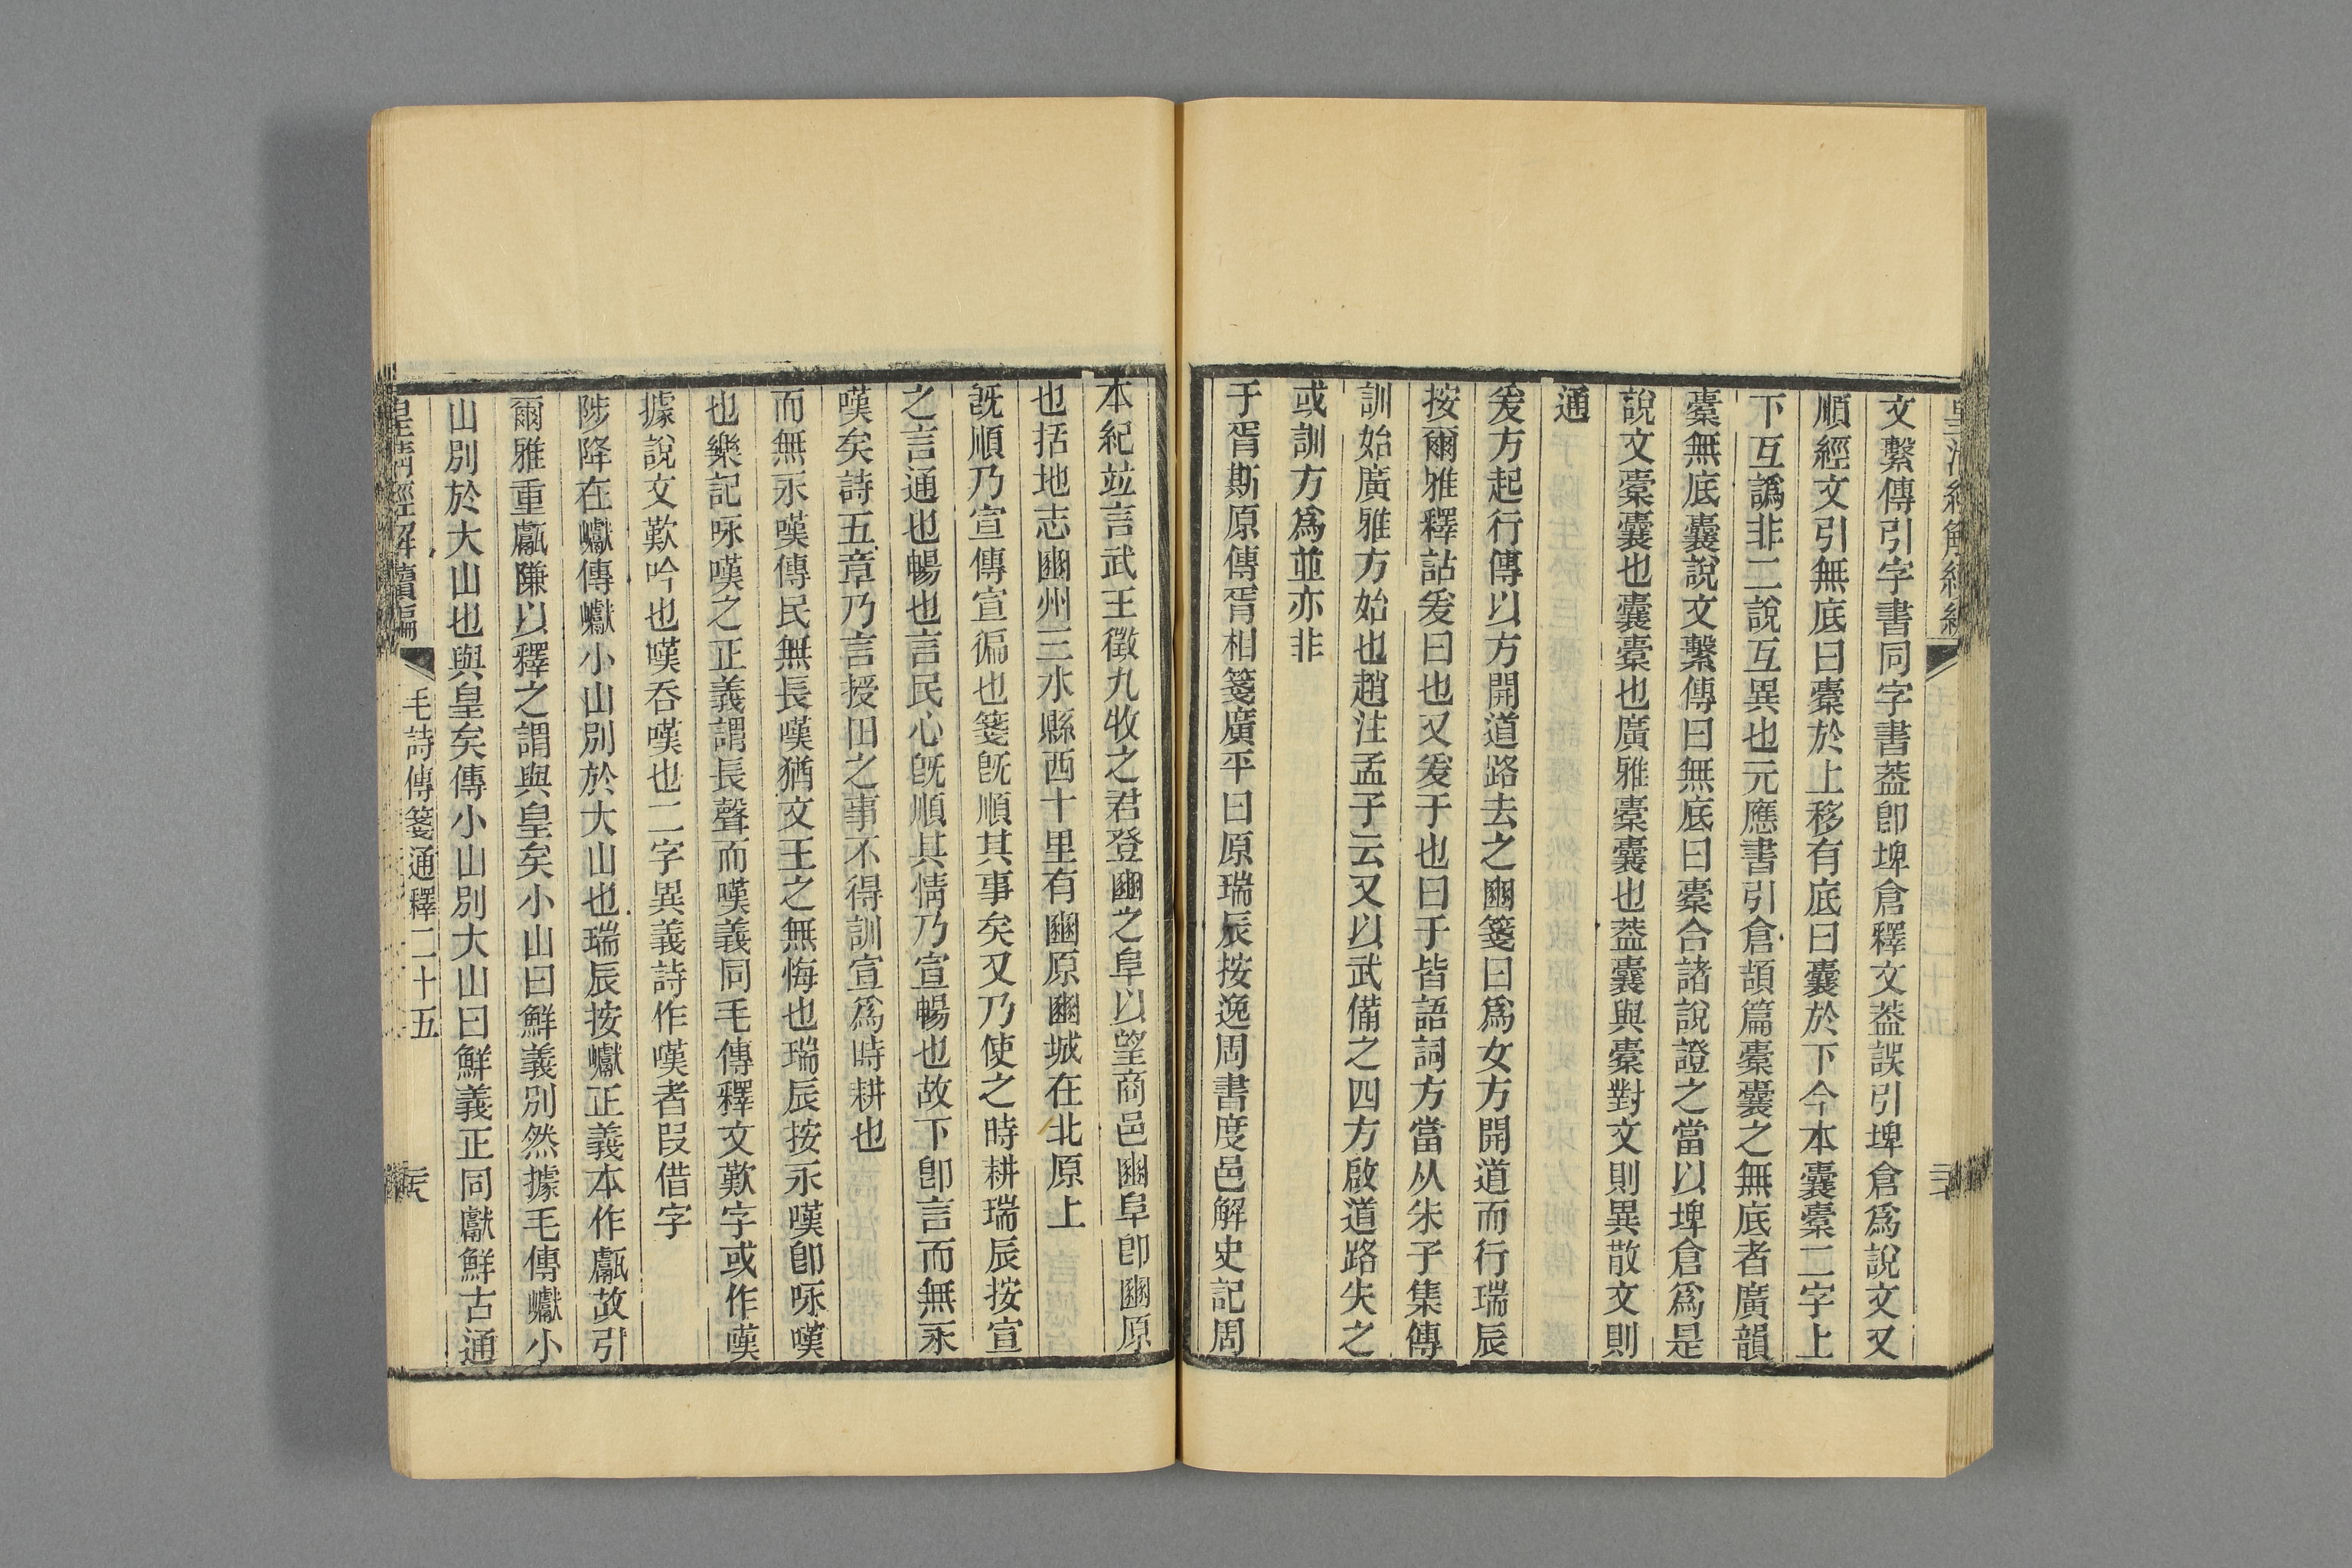 文繫傳引字書同字書葢卽埤倉釋文葢誤引埤倉爲說文又
順經文引無底曰橐於上移有底曰囊於下今本囊橐二字上
下互譌非二說互異也元應書引倉頡篇橐囊之無底者廣韻
橐無底囊說文繫傳曰無底曰橐合諸說證之當以埤倉爲是
說文橐囊也囊橐也廣雅橐囊也葢囊與橐對文則異散文則
通
爰方起行傳以方開道路去之豳箋曰爲女方開道而行瑞辰
按爾雅釋詁爰曰也又爰于也曰于皆語詞方當从朱子集傳
訓始廣雅方始也趙注孟子云又以武備之四方啟道路失之
或訓方爲並亦非
于胥斯原傳胥相箋廣平曰原瑞辰按逸周書度邑解史記周
本紀竝言武王徵九牧之君登豳之阜以望商邑豳阜卽豳原
也括地志豳州三水縣西十里有豳原豳城在北原上
旣順乃宣傳宣徧也箋旣順其事矣又乃使之時耕瑞辰按宣
之言通也暢也言民心旣順其情乃宣暢也故下卽言而無永
嘆矣詩五章乃言授田之事不得訓宣爲時耕也
而無永嘆傳民無長嘆猶文王之無悔也瑞辰按永嘆卽咏嘆
也樂記咏嘆之正義謂長聲而嘆義同毛傳釋文歎字或作嘆
據說文歎吟也嘆吞嘆也二字異義詩作嘆者叚借字
陟降在巘傳巘小山別於大山也瑞辰按巘正義本作甗故引
爾雅重甗隒以釋之謂與皇矣小山曰鮮義別然據毛傳巘小
山別於大山也與皇矣傳小山別大山曰鮮義正同獻鮮古通
皇淸經解續編
毛詩傳箋通釋二十五